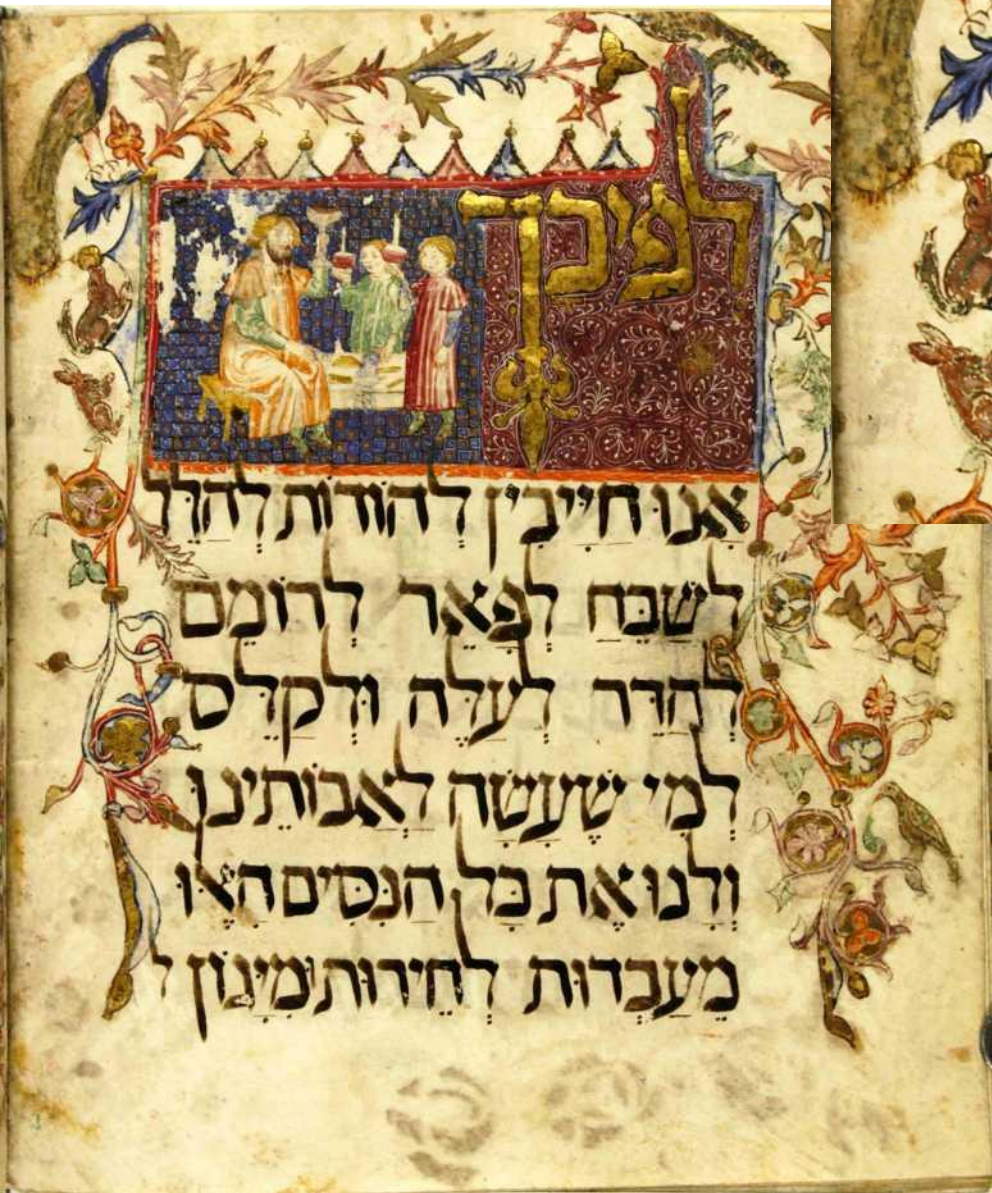 לפיכך
אנו חייבין להודות להלל
לשבח לפאר לרומם
להדר לעלה ולקלס
למי שעשה לאבותינו
ולנו את כל הנסים האלו
מעבדות לחירות מיגון ל